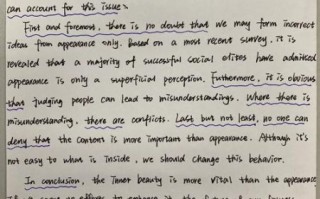 can account for this issue:
First and foremost, there is no doubt that we may form incorrect
ideas from appearance only. Based on a most recent survey, it is
revealed that a majority of successful social elites have admitted
appearance is only a superficial perception. Futhermore, it is obvious
that judging people can lead to misunderstandings. Where there is
misunderstanding, there are conflicts. Last but not least, no one can
deny that the content is more important than appearance. Although it's
not easy to what is inside, we should change this behavior.
In conclusion, the inner beauty is more vital than the appearance